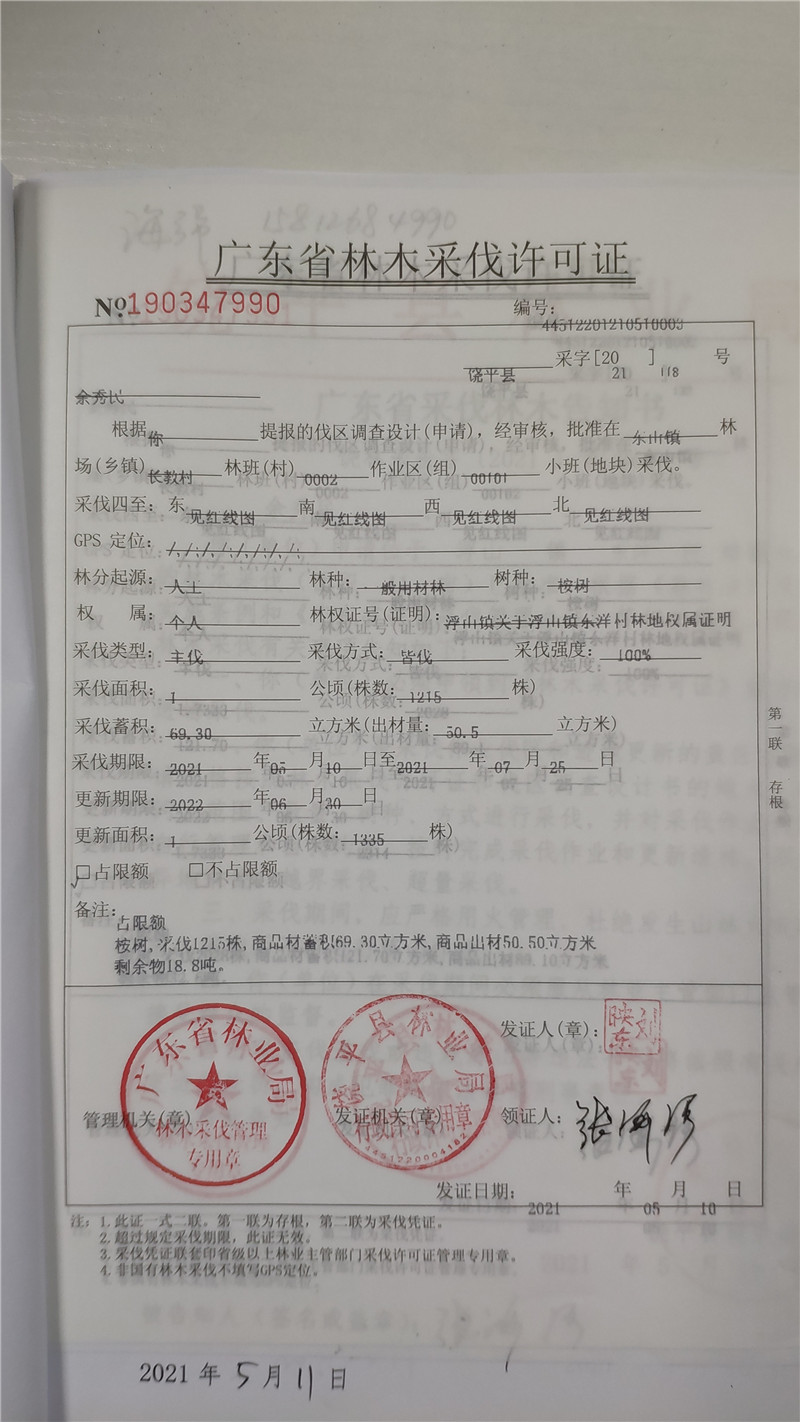 广东省林木采伐许可证
№190347990 编号:
44512201210510003
饶平县采字[2021]118号
余秀民
根据你提报的伐区调查设计(申请),经审核,批准在东山镇林
场(乡镇)长教村林班(村)0002作业区(组)00101小班(地块)采伐。
采伐四至:东见红线图南见红线图西见红线图北见红线图
GPS 定位:/,/,/,/,/,/,/,/;
林分起源:人工 林种:一般用材林 树种:桉树
权 属:个人 林权证号(证明):浮山镇关于浮山镇东洋村林地权属证明
采伐类型:主伐 采伐方式:皆伐 采伐强度:100%
采伐面积:1 公顷(株数:1215 株)
采伐蓄积:69.30 立方米(出材量:50.5 立方米)
采伐期限:2021年05月10日至2021年07月25日
更新期限:2022年06月30日
更新面积:1 公顷(株数:1335 株)
✓□占限额 □不占限额
备注:
占限额
桉树,采伐1215株,商品材蓄积69.30立方米,商品出材50.50立方米
剩余物18.8吨。
广东省林业局
林木采伐管理
专用章
饶平县林业局
行政许可专用章
4451220004162
管理机关(章) 发证机关(章)
发证人(章):刘映东
领证人:
发证日期:2021年05月10日
注:1.此证一式二联。第一联为存根,第二联为采伐凭证。
2.超过规定采伐期限,此证无效。
3.采伐凭证联套印省级以上林业主管部门采伐许可证管理专用章。
4.非国有林木采伐不填写GPS定位。
第一联 存根
2021年5月11日